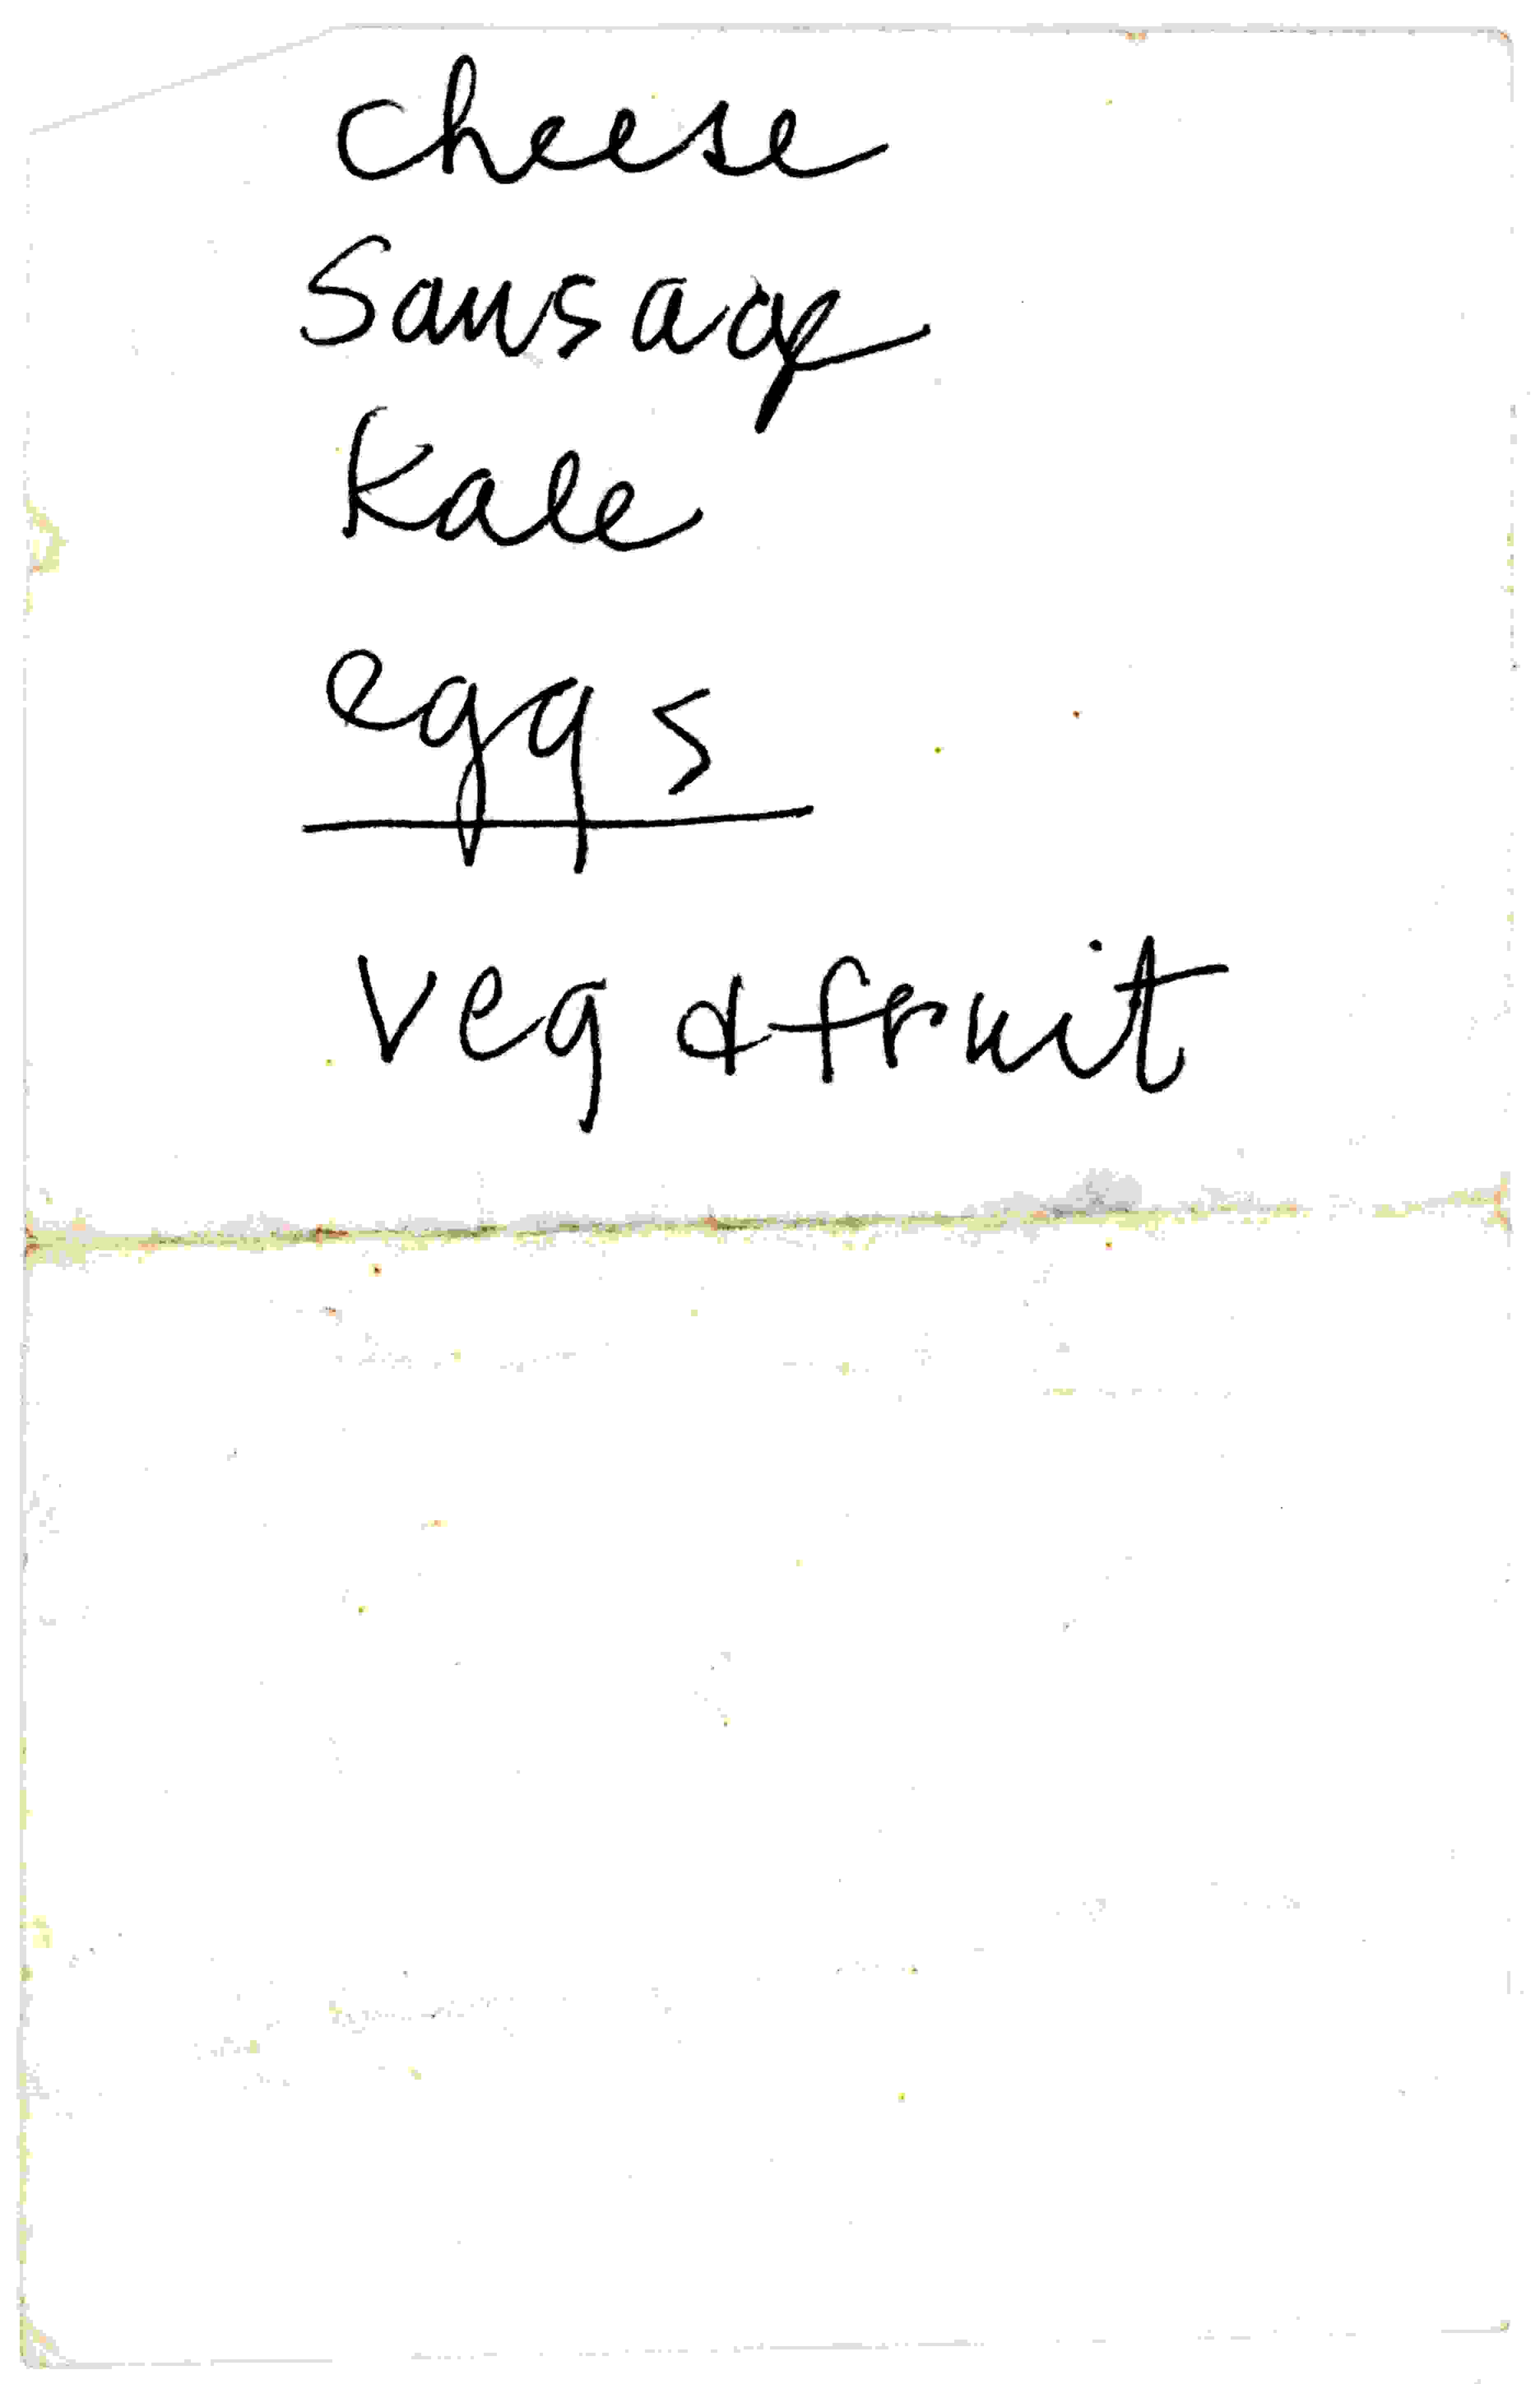 cheese
Sausage
Kale
eggs
veg & fruit